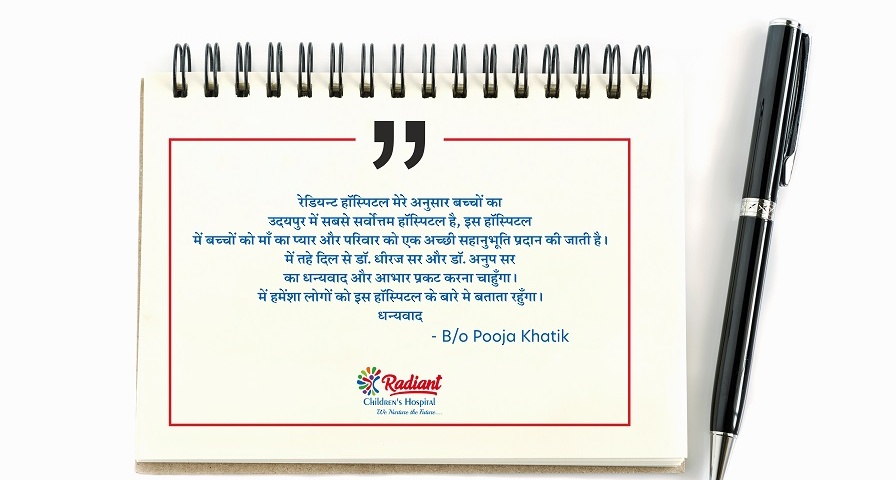 ”
रेडियन्ट हॉस्पिटल मेरे अनुसार बच्चों का
उदयपुर में सबसे सर्वोत्तम हॉस्पिटल है, इस हॉस्पिटल
में बच्चों को माँ का प्यार और परिवार को एक अच्छी सहानुभूति प्रदान की जाती है।
में तहे दिल से डॉ. धीरज सर और डॉ. अनुप सर
का धन्यवाद और आभार प्रकट करना चाहुँगा।
में हमेंशा लोगों को इस हॉस्पिटल के बारे मे बताता रहुँगा।
धन्यवाद
- B/o Pooja Khatik
Radiant
Children's Hospital
We Nurture the Future...